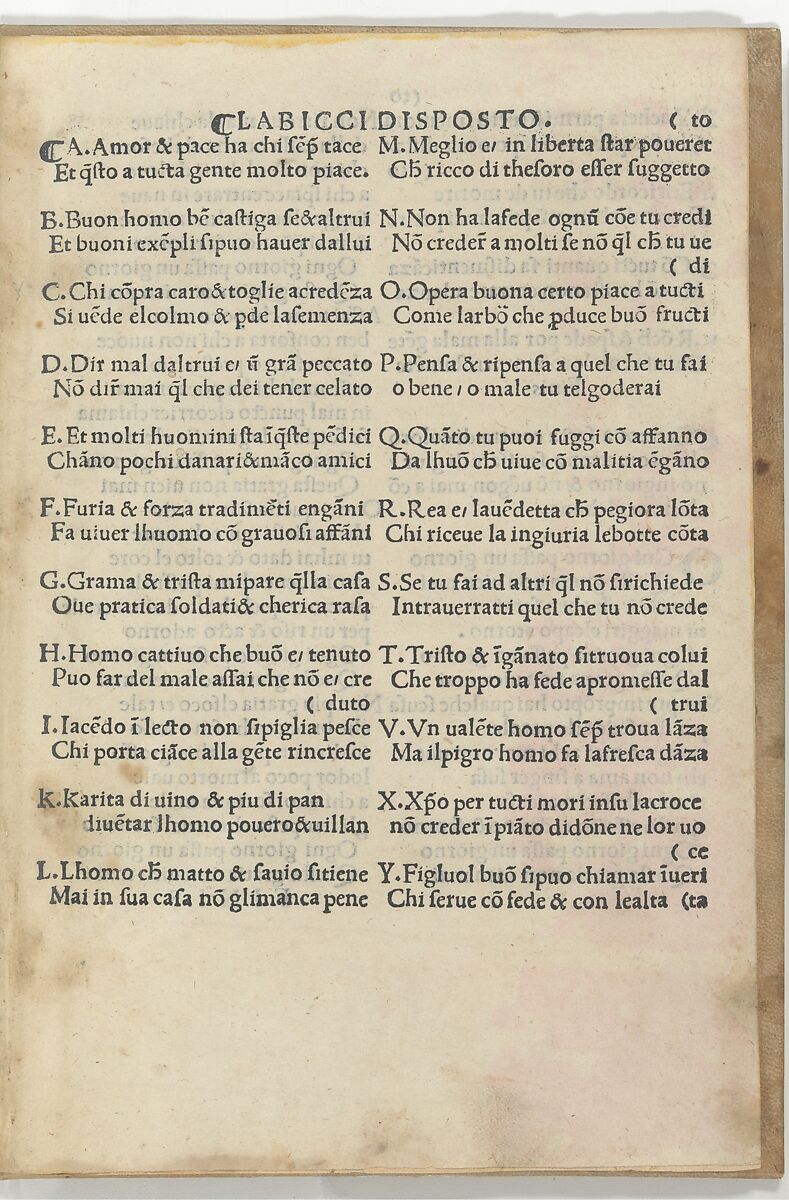 ¶LABICCI DISPOSTO.
¶A.Amor & pace ha chi sēp̄ tace
Et q̄sto a tucta gente molto piace.
B.Buon homo bē castiga se&altrui
Et buoni exēpli sipuo hauer dallui
C.Chi cōpra caro&toglie acredēza
Si uēde elcolmo & ꝑde lasemenza
D.Dir mal daltrui e/ ū grā peccato
Nō dir̄ mai q̄l che dei tener celato
E.Et molti huomini staīq̄ste pēdici
Chāno pochi danari&māco amici
F.Furia & forza tradimēti engāni
Fa uiuer lhuomo cō grauosi affāni
G.Grama & trista mipare q̄lla casa
Oue pratica soldati& cherica rasa
H.Homo cattiuo che buō e/ tenuto
Puo far del male assai che nō e/ cre
( duto
I.Iacēdo ī lecto non sipiglia pesce
Chi porta ciāce alla gēte rincresce
K.Karita di uino & piu di pan
diuētar lhomo pouero&uillan
L.Lhomo cħ matto & sauio sitiene
Mai in sua casa nō glimanca pene
( to
M.Meglio e/ in liberta star poueret
Cħ ricco di thesoro esser suggetto
N.Non ha lafede ognū cōe tu credi
Nō creder̄ a molti se nō q̄l cħ tu ue
( di
O.Opera buona certo piace a tucti
Come larbō che ꝓduce buō fructi
P.Pensa & ripensa a quel che tu fai
o bene / o male tu telgoderai
Q.Quāto tu puoi fuggi cō affanno
Da lhuō cħ uiue cō malitia ēgāno
R.Rea e/ lauēdetta cħ pegiora lōta
Chi riceue la ingiuria lebotte cōta
S.Se tu fai ad altri q̄l nō sirichiede
Intrauerratti quel che tu nō crede
T.Tristo & īgānato sitruoua colui
Che troppo ha fede apromesse dal
( trui
V.Vn ualēte homo sēp̄ troua lāza
Ma ilpigro homo fa lafresca dāza
X.Xp̄o per tucti mori insu lacroce
nō creder īpiāto didōne ne lor uo
( ce
Y.Figluol buō sipuo chiamar īueri
Chi serue cō fede & con lealta (ta